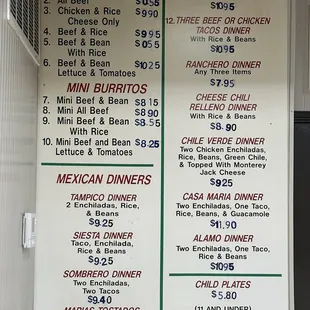 2. All Beef
3. Chicken & Rice $9.90
Cheese Only
4. Beef & Rice $9.95
5. Beef & Bean
With Rice
6. Beef & Bean $10.25
Lettuce & Tomatoes
MINI BURRITOS
7. Mini Beef & Bean $8.15
8. Mini All Beef $8.90
9. Mini Beef & Bean $8.55
With Rice
10. Mini Beef and Bean $8.25
Lettuce & Tomatoes
MEXICAN DINNERS
TAMPICO DINNER
2 Enchiladas, Rice,
& Beans
$9.25
SIESTA DINNER
Taco, Enchilada,
Rice & Beans
$9.25
SOMBRERO DINNER
Two Enchiladas,
Two Tacos
$9.40
MARIAS TOSTADOS
$10.95
12. THREE BEEF OR CHICKEN
TACOS DINNER
With Rice & Beans
$10.95
RANCHERO DINNER
Any Three Items
$7.95
CHEESE CHILI
RELLENO DINNER
With Rice & Beans
$8.90
CHILE VERDE DINNER
Two Chicken Enchiladas,
Rice, Beans, Green Chile,
& Topped With Monterey
Jack Cheese
$9.25
CASA MARIA DINNER
Two Enchiladas, One Taco,
Rice, Beans, & Guacamole
$11.90
ALAMO DINNER
Two Enchiladas, One Taco,
Rice & Beans
$10.95
CHILD PLATES
$5.80
(11 AND UNDER)